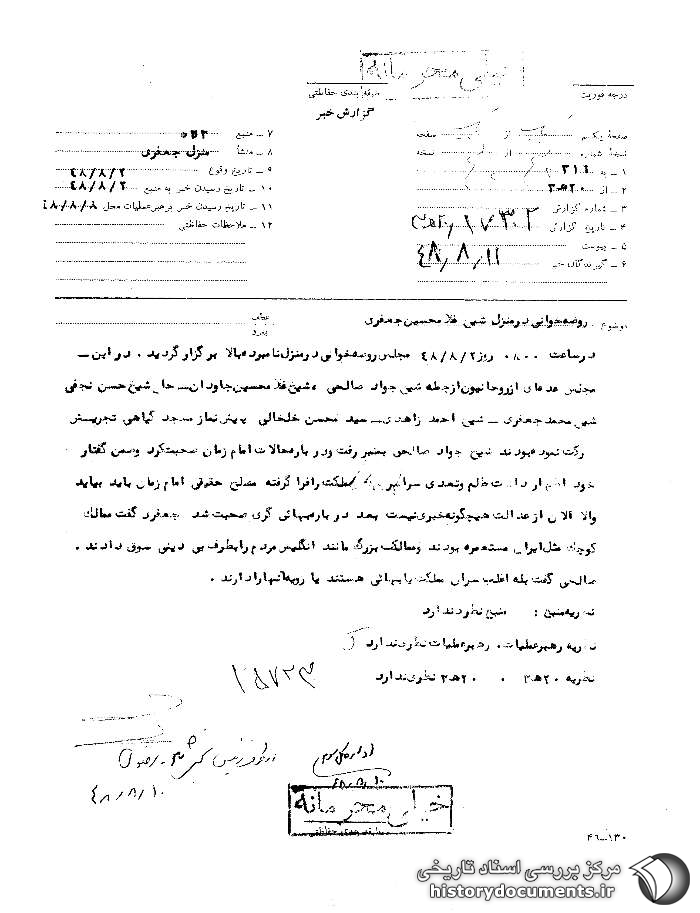 خیلی محرمانه
درجه فوریت
طبقه بندی حفاظتی
گزارش خبر
صفحه یکم از صفحه
نسخهٔ شماره از نسخه
۱ ـ به ۳۱۱
۲ ـ از ۲۰ه۳
۳ ـ شماره گزارش
۴ ـ تاریخ گزارش
۵ ـ پیوست
۶ ـ گیرندگان خبر
۴۸/۸/۱۱
۷ ـ منبع
۸ ـ منشأ منزل جعفری
۹ ـ تاریخ وقوع ۴۸/۸/۲
۱۰ ـ تاریخ رسیدن خبر به منبع ۴۸/۸/۲
۱۱ ـ تاریخ رسیدن خبر برهبر عملیات محل ۴۸/۸/۸
۱۲ ـ ملاحظات حفاظتی
موضوع : روضه خوانی در منزل شیخ غلامحسین جعفری
عطف
پیرو
در ساعت ۰۸۰۰ روز ۴۸/۸/۲ مجلس روضه خوانی در منزل نامبرده بالا برگزار گردید . در این ـ
مجلس عده ای از روحانیون از جمله شیخ جواد صالحی ، شیخ غلامحسین جاودان ـ حاج شیخ حسن نجفی
شیخ محمد جعفری ـ شیخ احمد زاهدی ـ سید محسن خلخالی پیش نماز مسجد گیاهی تجریش
رکت نموده بودند شیخ جواد صالحی بمنبر رفت و درباره حالات امام زمان صحبت کرد و ضمن گفتار
خود اظهار داشت ظلم و تعدی سراسر مملکت را فرا گرفته مصلح حقیقی امام زمان باید بیاید
والا الان از عدالت هیچگونه خبری نیست بعد در باره بهائی گری صحبت شد جعفری گفت ممالک
کوچک مثل ایران مستعمره بودند و ممالک بزرگ مانند انگلیس مردم را بطرف بی دینی سوق دادند .
صالحی گفت بله اغلب سران مملکت یا بهائی هستند یا رویه آنها را دارند .
نظریه منبع : منبع نظری ندارد
نظریه رهبر عملیات . رهبر عملیات نظری ندارد
نظریه ۲۰ه۳ . ۲۰ه۳ نظری ندارد
۱۵۷۲۳
اداره کل سوم
۴۸/۸/۱۰
۴۸/۸/۱۰
خیلی محرمانه
طبقه بندی حفاظتی
۴۶-۱۳۰
مرکز بررسی اسناد تاریخی
historydocuments.ir